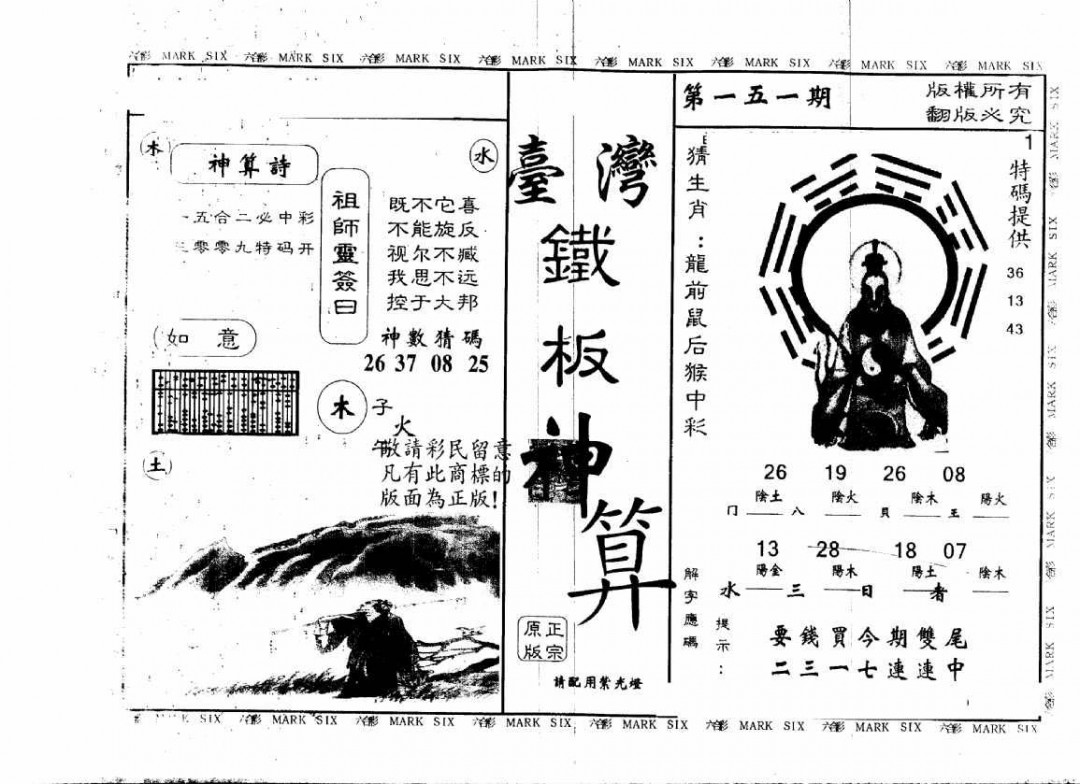 六合彩 MARK SIX 六合彩 MARK SIX 六合彩 MARK SIX 六合彩 MARK SIX 六合彩 MARK SIX 六合彩 MARK SIX 六合彩 MARK SIX 六合彩 MARK SIX
木
神算詩
水
五合二必中彩
零零九特码开
祖師靈簽曰
既不它喜
不能旋反
视尔不臧
我思不远
控于大邦
神數猜碼
26 37 08 25
如意
木
子
火
午
敬請彩民留意
凡有此商標的
版面為正版!
土
臺灣
鐵板神算
正宗
原版
請配用紫光燈
第一五一期
版權所有
翻版必究
猜生肖:龍前鼠后猴中彩
1
特碼提供
36
13
43
26 19 26 08
陰土 陰火 陰木 陽火
门 八 貝 王
13 28 18 07
陽金 陽木 陽土 陰木
水 三 日 者
解字應碼
提示:
要錢買今期雙尾
二三一七連連中
SIX 六合彩 MARK SIX 六合彩 MARK SIX 六合彩 MARK SIX 六合彩 MARK SIX 六合彩 MARK SIX 六合彩 MARK SIX 六合彩 MARK SIX